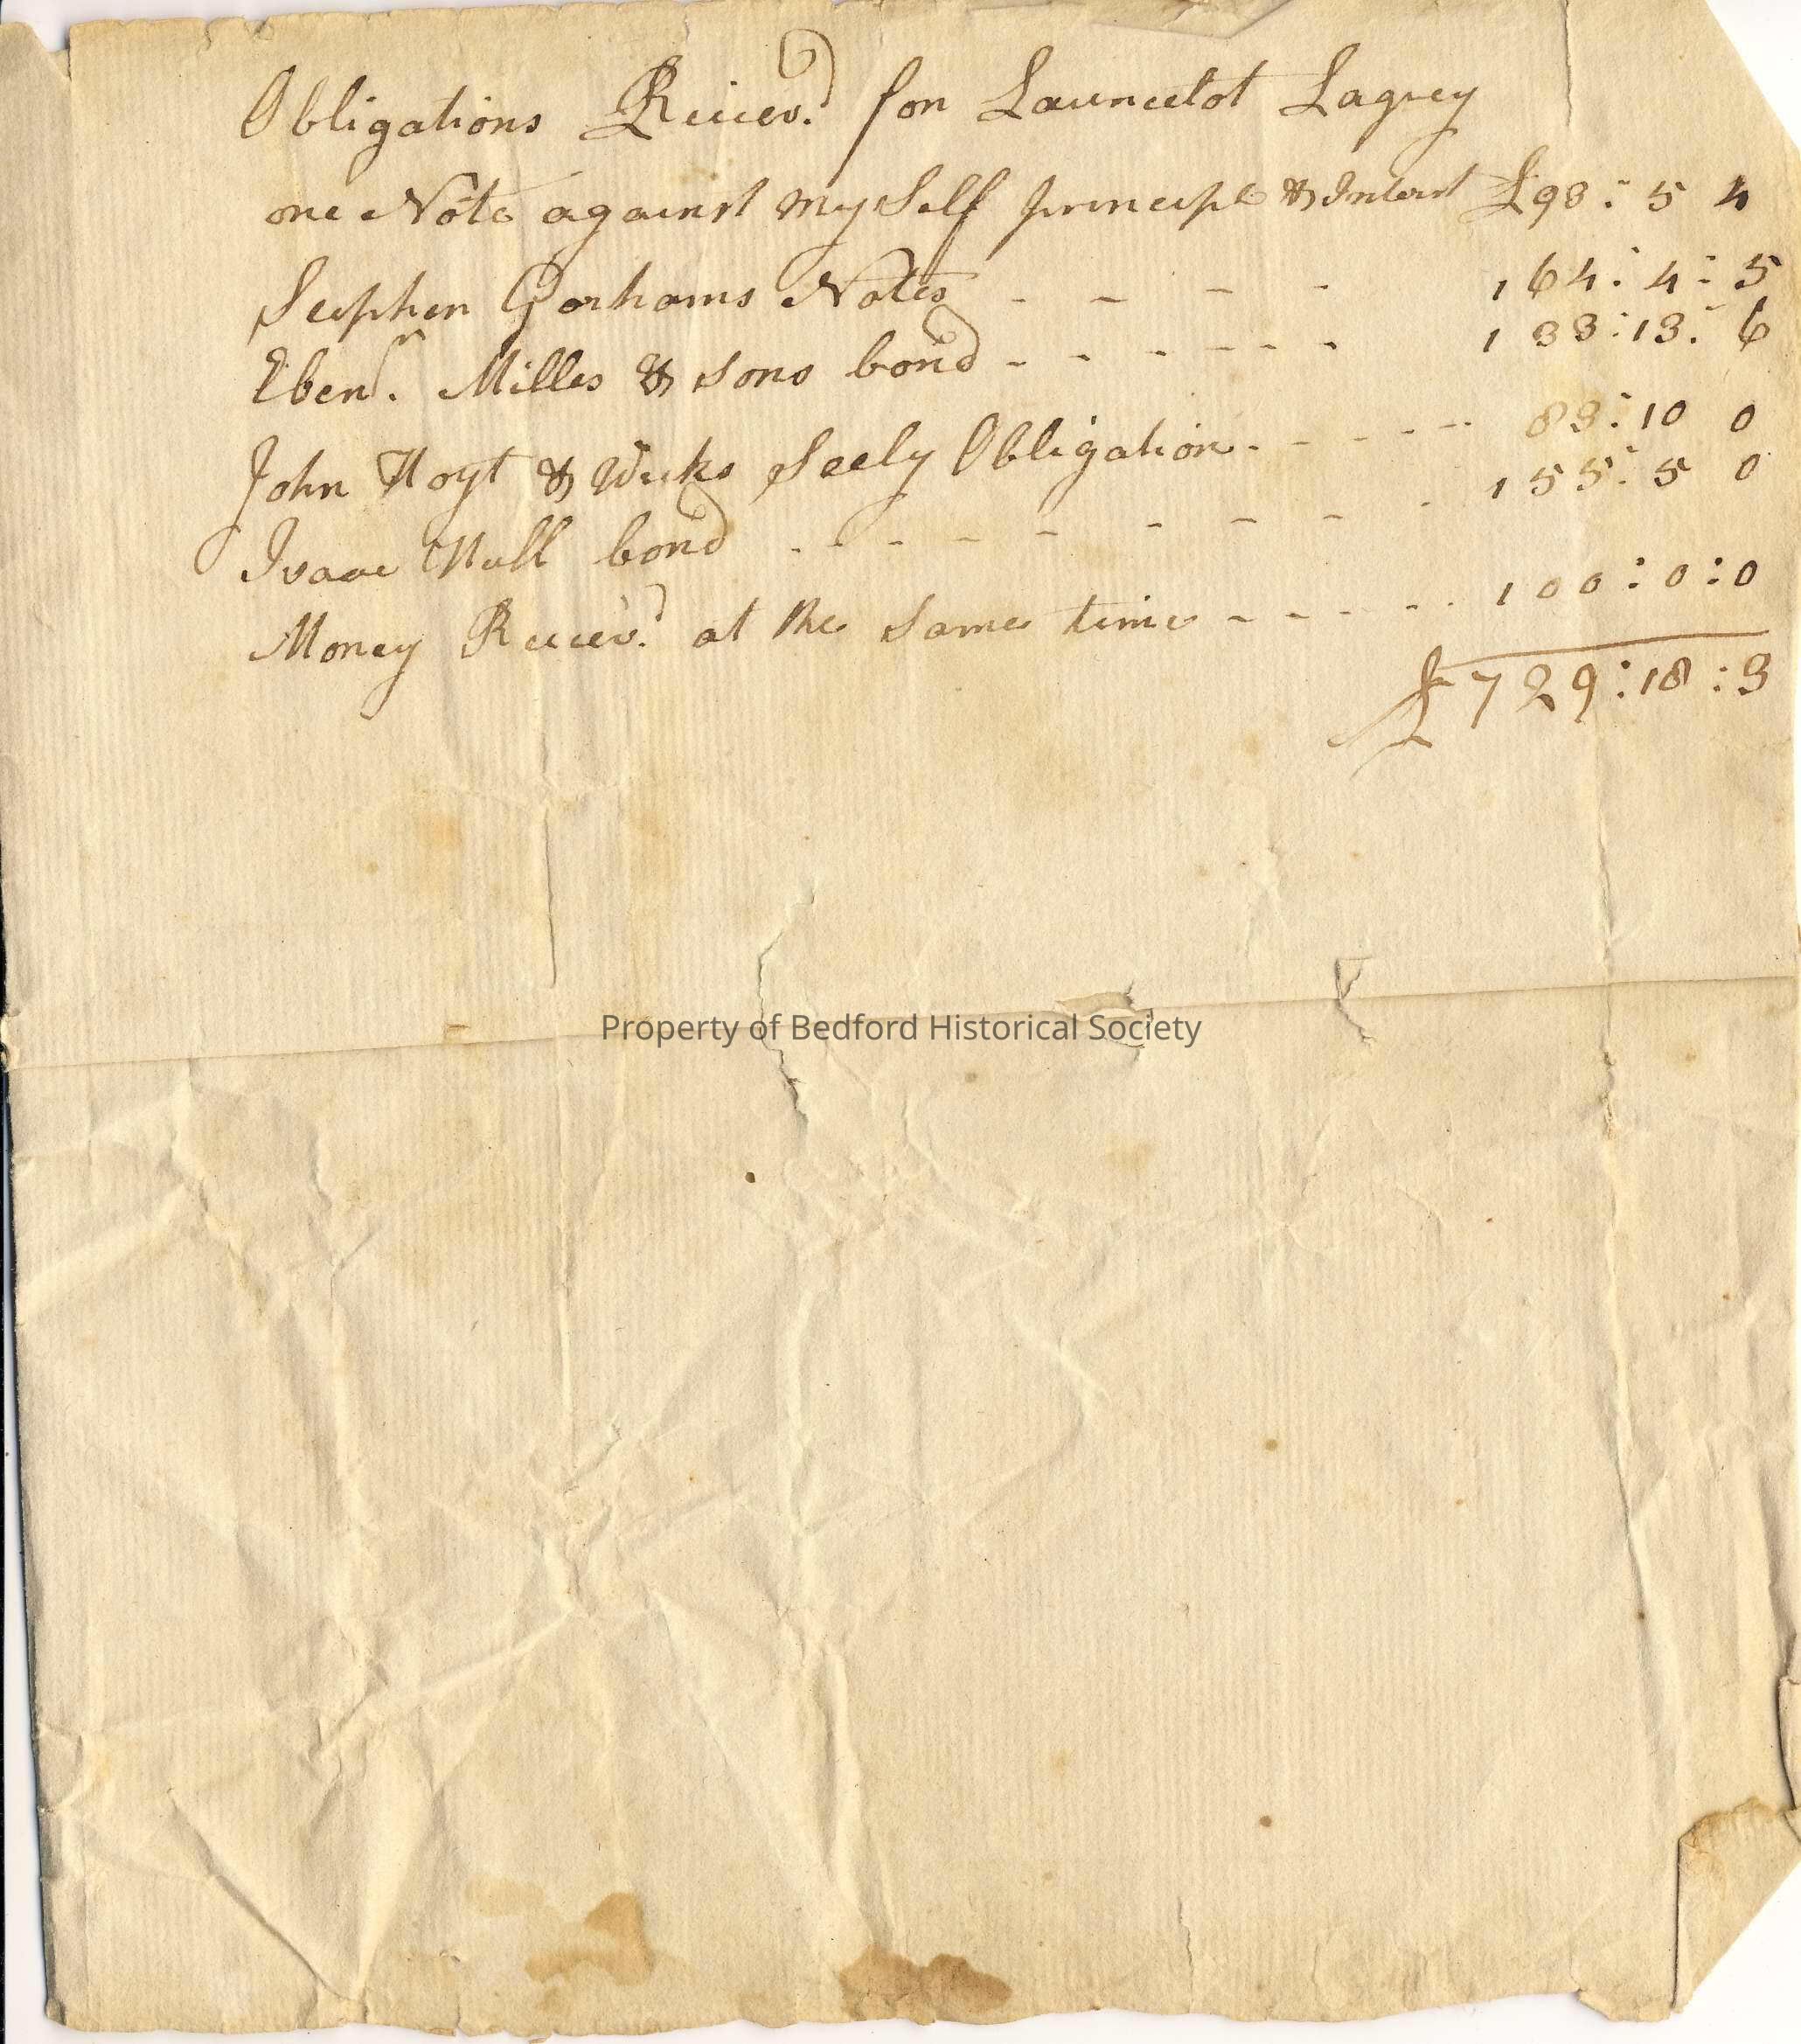 Obligations Reciev.d for Launcelot Lagrey
one Note against my Self principl & Interst £93 : 5 4
Stephen Gorhams Notes - - - - 164 : 4 : 5
Eben.r Milles & sons bond - - - - - - 133 : 13 : 6
John Hoyt & Weeks Seely Obligation - - - - - - 83 : 10 0
Isaac Hull bond - - - - - - - - - 155 : 5 0
Money Reciev.d at the Same time - - - - - - 100 : 0 : 0
£729 : 18 : 3
Property of Bedford Historical Society